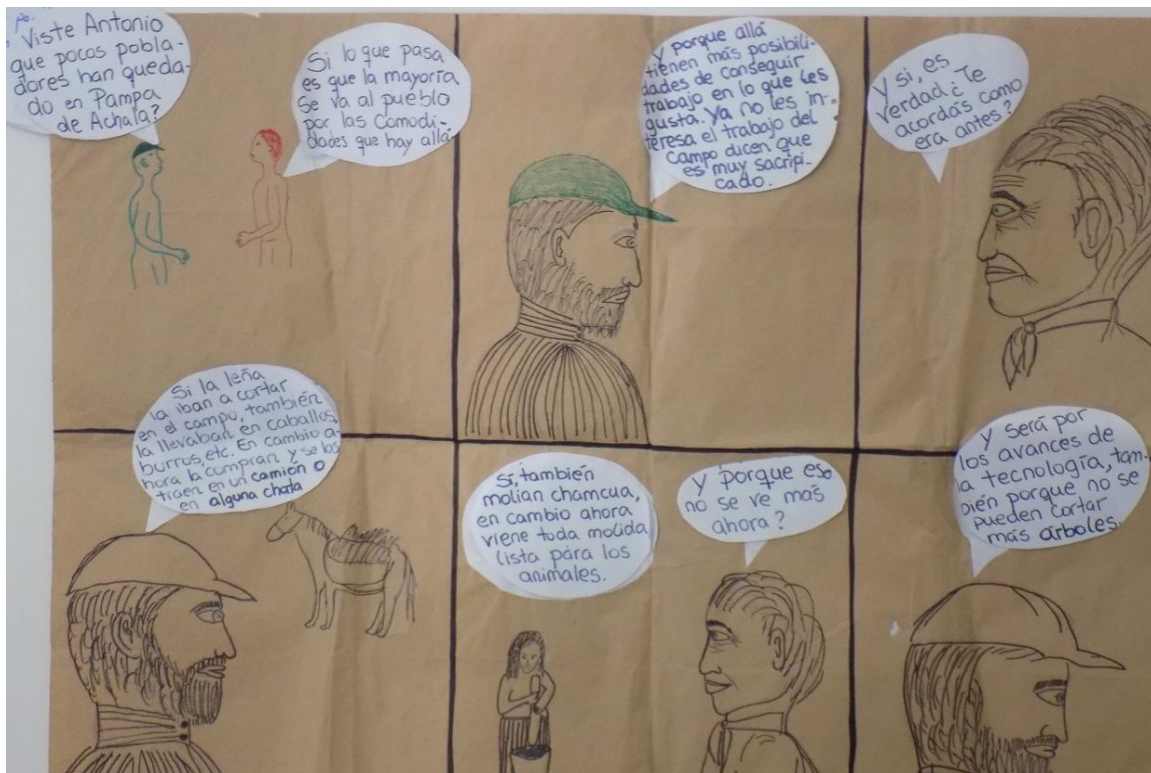 po.
Viste Antonio
que pocos pobla-
dores han queda-
do en Pampa
de Achala?
Si lo que pasa
es que la mayoría
se va al pueblo
por las Comodi-
dades que hay allá
y porque allá
tienen más posibili-
dades de conseguir
trabajo en lo que les
gusta. Ya no les in-
teresa el trabajo del
campo dicen que
es muy sacrifi-
cado.
Y si, es
verdad ¿Te
acordás como
era antes?
Si la leña
la iban a cortar
en el campo, también
la llevaban en caballos,
burros, etc. En cambio a-
hora la compran y se las
traen en un camión o
en alguna chata
Si, también
molian chamcua,
en cambio ahora
viene toda molida
lista pára los
animales.
Y porque eso
no se ve más
ahora?
Y será por
los avances de
la tecnología, tam-
bién porque no se
pueden cortar
más árboles.